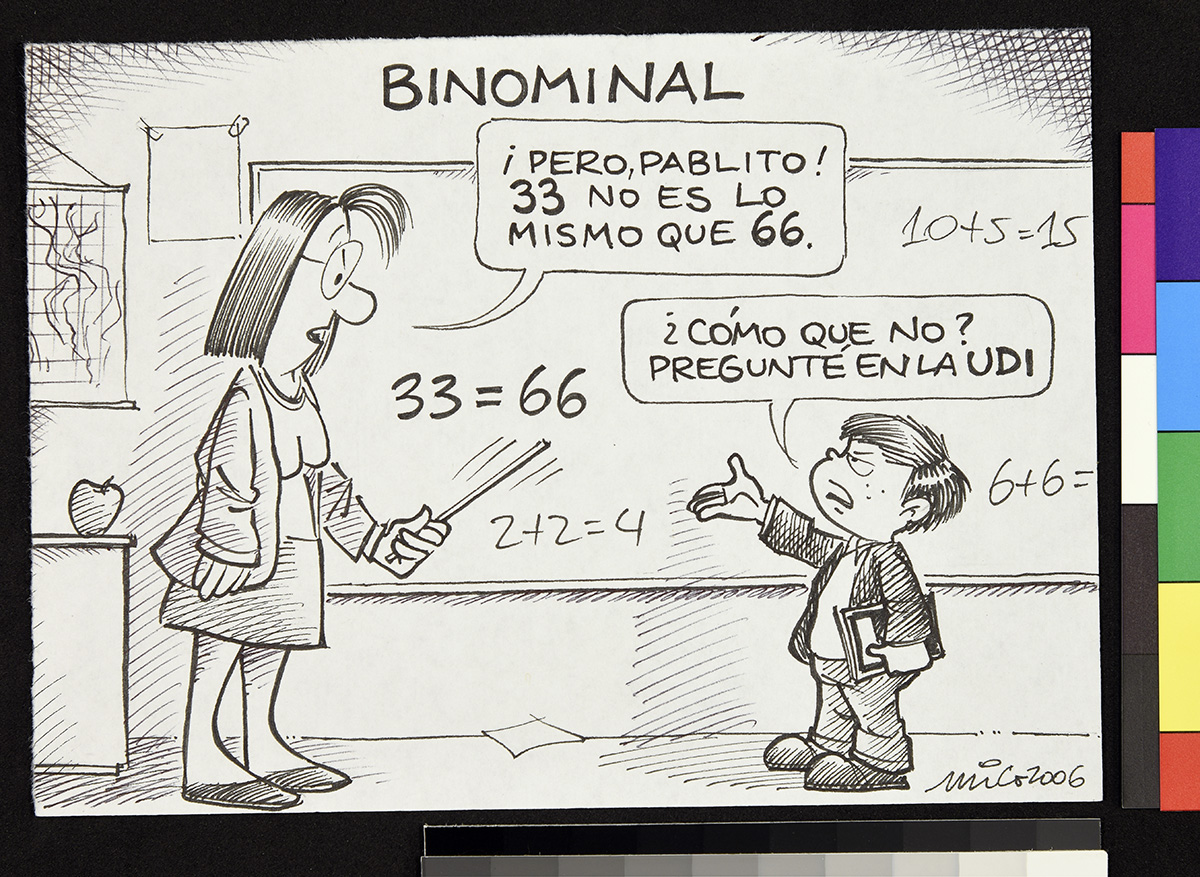 BINOMINAL
¡PERO, PABLITO!
33 NO ES LO
MISMO QUE 66.
10+5=15
¿CÓMO QUE NO?
PREGUNTÉ EN LA UDI
33=66
6+6=
2+2=4
MICO 2006